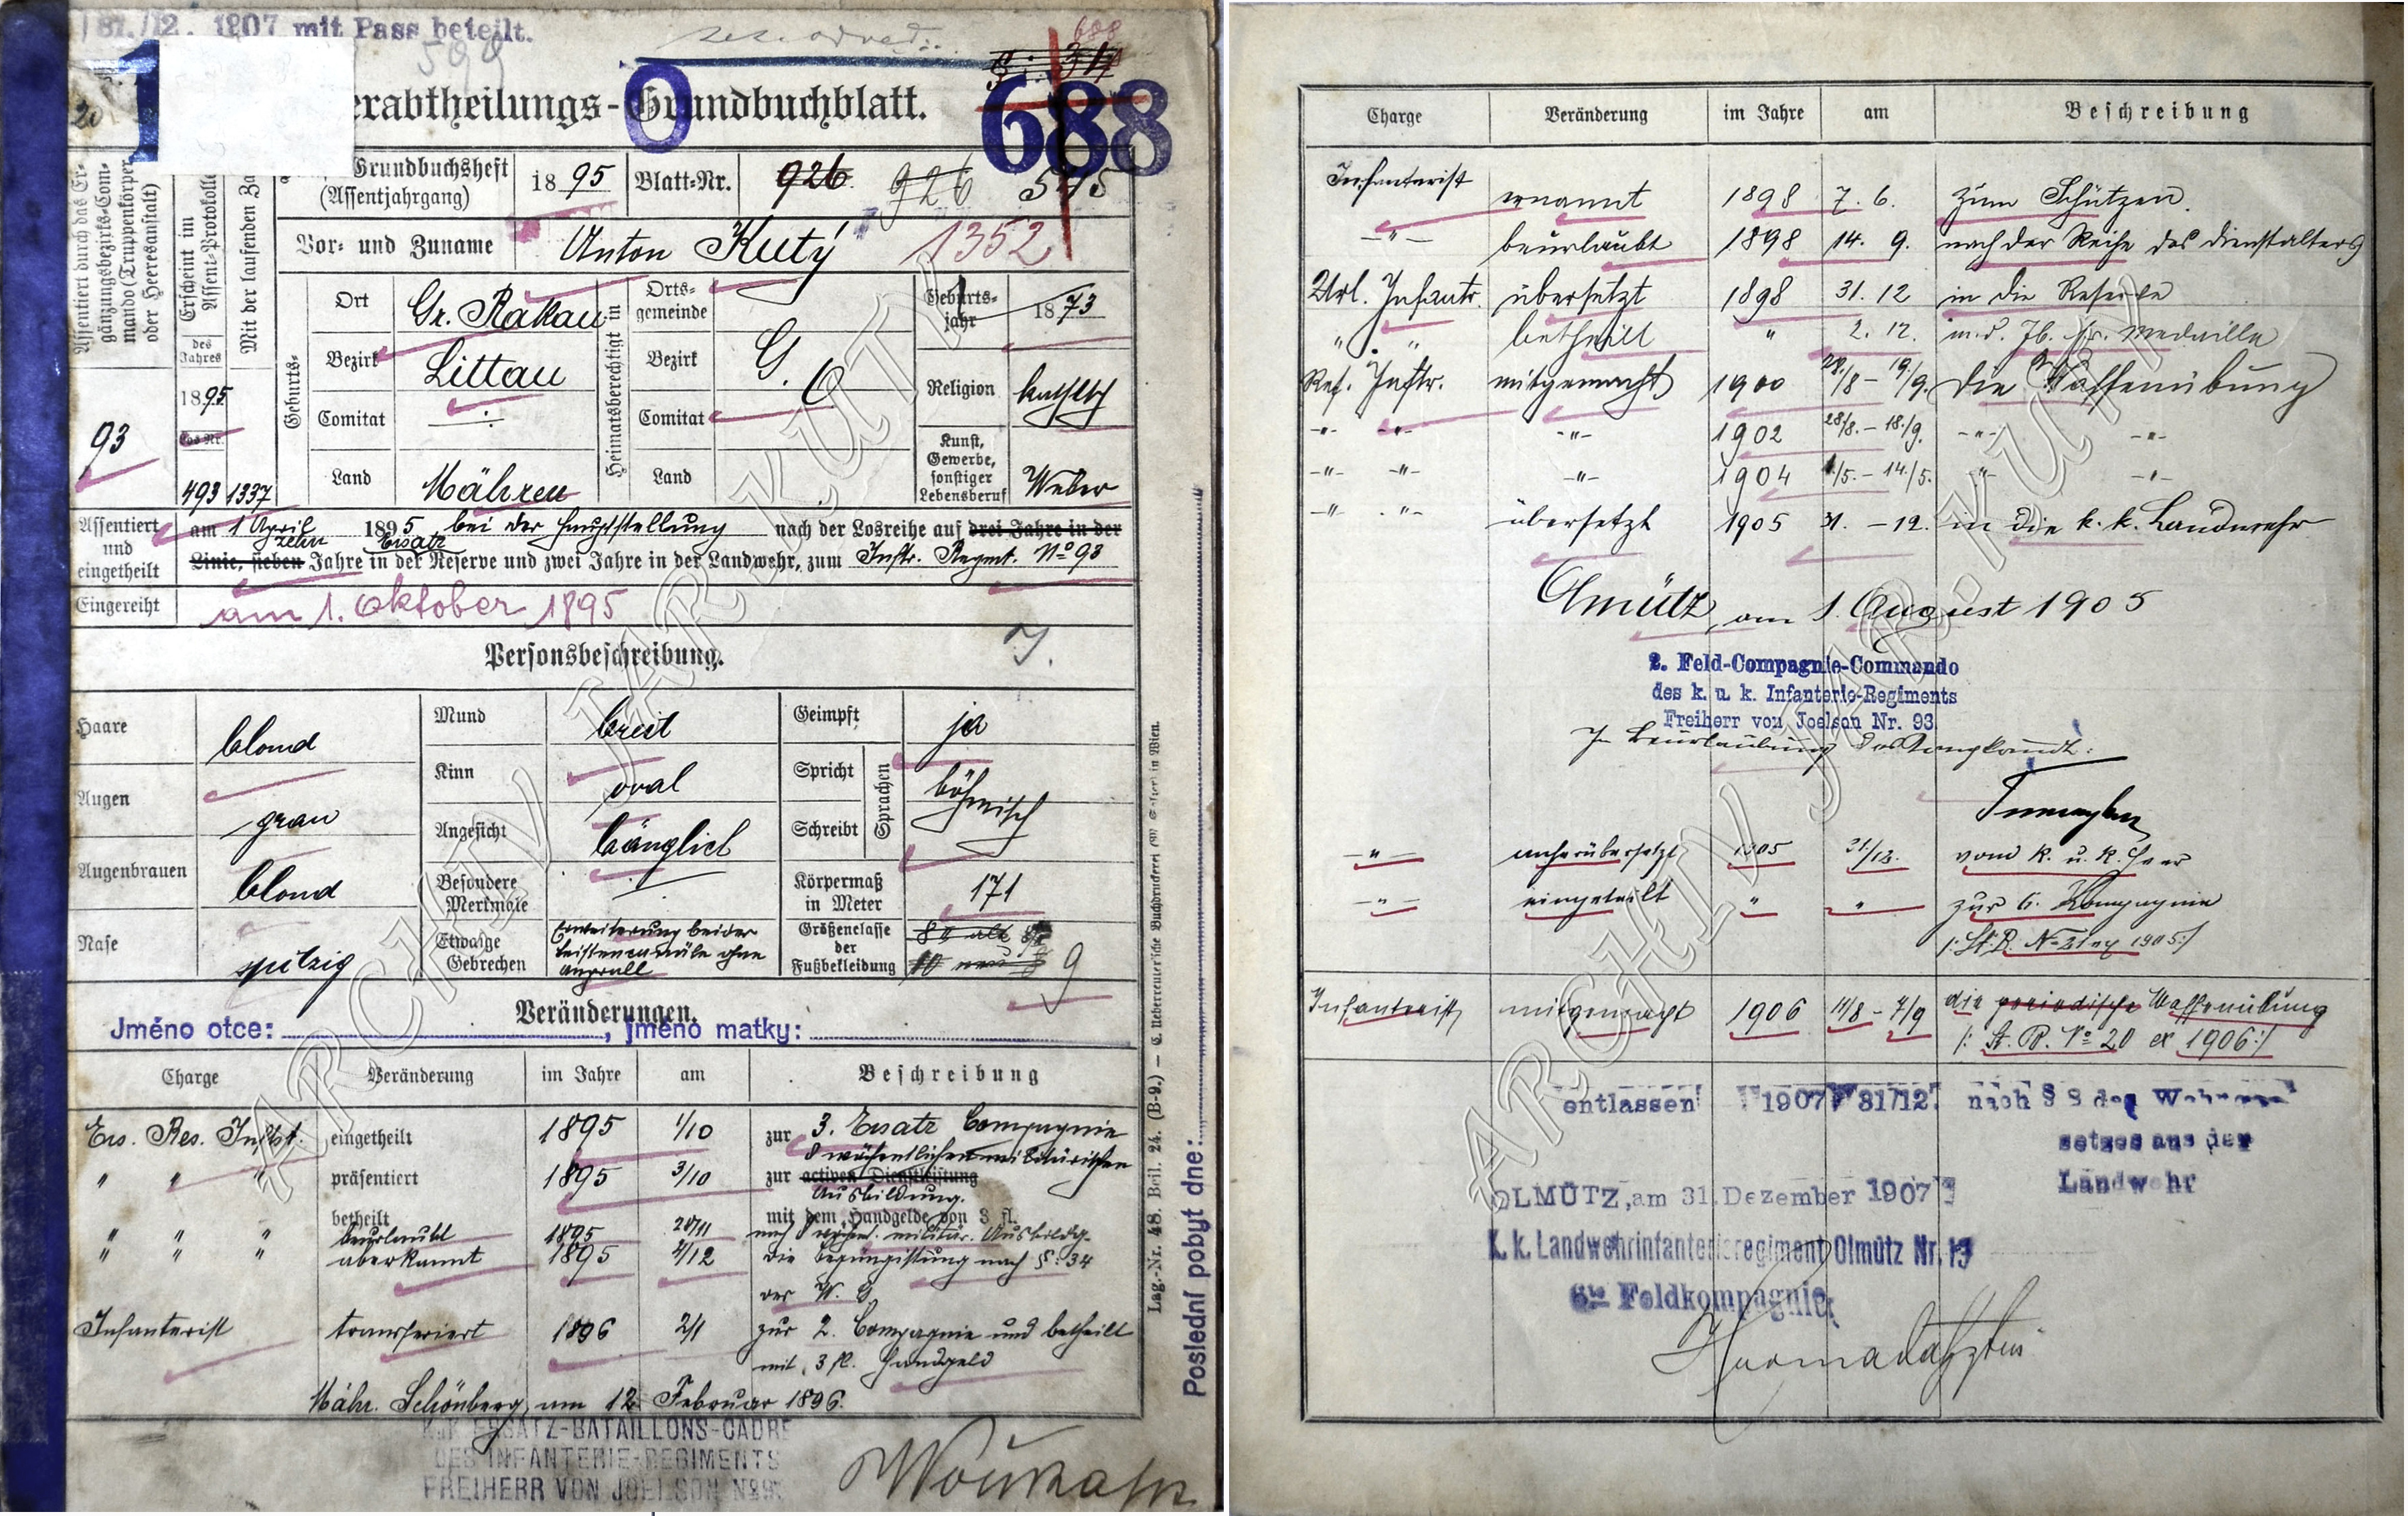 31./12. 1907 mit Pass beteilt.
599
688
erabtheilungs-Grundbuchblatt.
0
688
Assentiert durch das Ergänzungsbezirks-Commando (Truppenkörper oder Heeresanstalt)
93
Erscheint im Assent-Protokolle
des Jahres
1895
Los-Nr.
493
Mit der laufenden Za
1337
Grundbuchsheft
(Assentjahrgang)
1895
Blatt-Nr.
926
926
Vor- und Zuname
Anton Kutý
1352
Geburts-
Ort
Gr. Rakau
Bezirk
Littau
Comitat
Land
Mähren
Heimatsberechtigt in
Orts-
gemeinde
Bezirk
G.
Comitat
O
Land
Geburts-
jahr
1873
Religion
kathlsch
Kunst,
Gewerbe,
sonstiger
Lebensberuf
Weber
Assentiert
und
eingetheilt
am 1 April 1895 bei der Hauptstellung nach der Losreihe auf drei Jahre in der
zehn Ersatz
Linie, sieben Jahre in der Reserve und zwei Jahre in der Landwehr, zum Inftr. Regmt. No 93
Eingereiht
am 1. Oktober 1895
Personsbeschreibung.
Haare
blond
Augen
grau
Augenbrauen
blond
Nase
spitzig
Mund
breit
Kinn
oval
Angesicht
länglich
Besondere
Merkmale
Etwaige
Gebrechen
Erweiterung beider
Leistencanäle ohne
Anprall
Geimpft
ja
Spricht
Schreibt
Sprachen
böhmisch
Körpermaß
in Meter
171
Größenclasse
der
Fußbekleidung
8 alt
10 neu
9
Veränderungen.
Jméno otce: , jméno matky:
Charge Veränderung im Jahre am Beschreibung
Ers. Res. Inftst. eingetheilt 1895 1/10 zur 3. Ersatz Compagnie
8 wöchentlichen militärischen
" " " präsentiert 1895 3/10 zur activen Dienstleistung
Ausbildung.
betheilt mit dem Handgelde von 3 fl.
" " " beurlaubt 1895 28/11 nach 8 wöchent. militär. Ausbildg.
" " " aberkannt 1895 2/12 die Begünstigung nach §: 34
des W. G.
Infanterist transferiert 1896 2/1 zur 2. Compagnie und betheilt
mit 3 fl. Handgeld
Mähr. Schönberg, am 12. Februar 1896.
K.u.K ERSATZ-BATAILLONS-CADRE
DES INFANTERIE-REGIMENTS
FREIHERR VON JOELSON No 93
Lag.-Nr. 48. Beil. 24. (B-9.) — C. Ueberreuter'sche Buchdruckerei in Wien.
Poslední pobyt dne:
Charge Veränderung im Jahre am Beschreibung
Infanterist ernannt 1898 7. 6. zum Schützen.
-"- beurlaubt 1898 14. 9. nach der Reihe des Dienstalters
Url. Infantr. übersetzt 1898 31. 12 in die Reserve
" " betheilt " 2. 12. m. d. Jb. Er. Medaille
Res. Inftr. mitgemacht 1900 28./8 - 19./9. die Waffenübung
-"- -"- -"- 1902 28/8. - 18./9. -"- -"-
-"- -"- -"- 1904 1/5. - 14./5. -"- -"-
-"- -"- übersetzt 1905 31. - 12. in die k. k. Landwehr
Olmütz, am 1. August 1905
2. Feld-Compagnie-Commando
des k. u. k. Infanterie-Regiments
Freiherr von Joelson Nr. 93
In Beurlaubung des Compkomdt:
-"- anherübersetzt 1905 31/12. vom k. u. k. Heer
-"- eingeteilt " " zur 6. Kompagnie
Infanterist mitgemacht 1906 11/8 - 7/9 die periodische Waffenübung
/: St. B. No 20 ex 1906 :/
entlassen 1907 31/12. nach § 8 des Wehrge-
setzes aus der
Landwehr
OLMÜTZ, am 31. Dezember 1907
K. k. Landwehrinfanterieregiment Olmütz Nr. 13
6te Feldkompagnie
ARCHIV JAR.KUTÝ
ARCHIV JAR.KUTÝ